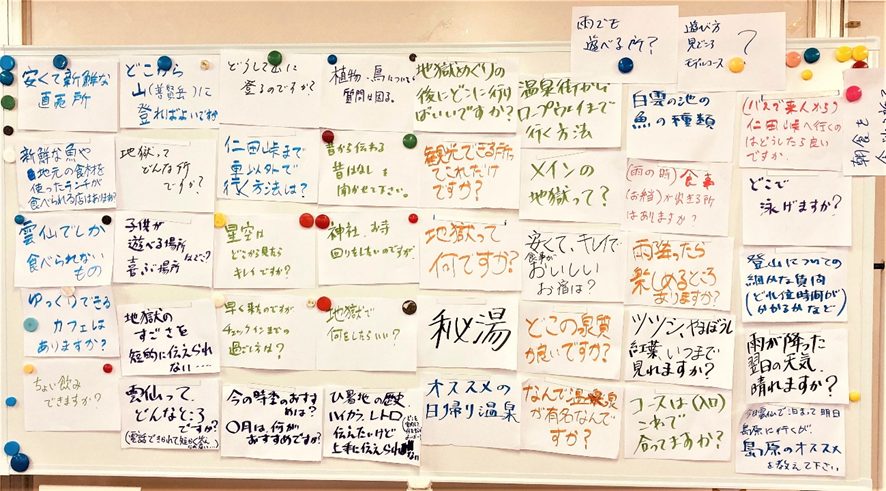 雨でも
遊べる所?
遊び方
見どころ
モデルコース
?
朝食を
安くて新鮮な
直売所
どこから
山(普賢岳)に
登ればよいですか
どうして山に
登るのですか?
植物、鳥について
質問は困る。
地獄めぐりの
後にどこに行け
ばいいですか?
温泉街から
ロープウェイまで
行く方法
白雲の池の
魚の種類
(バスで来んから)
仁田峠へ行くの
はどうしたら良い
ですか
新鮮な魚や
地元の食材を
使ったランチが
食べられる店はありますか?
地獄って
どんな所
ですか?
仁田峠まで
車以外で
行く方法は?
昔から伝わる
昔はなしを
聞かせて下さい。
観光できる所って
これだけ
ですか?
メインの
地獄って?
(雨の時)食事
(お弁当)が出きる所
はありますか?
どこで
泳げますか?
雲仙でしか
食べられない
もの
子供が
遊べる場所
喜ぶ場所
などは?
星空は
どこから見たら
キレイですか?
神社、お寺
回りをしたいのですが
地獄って
何ですか?
安くて、キレイで
食事が
おいしい
お宿は?
雨降ったら
楽しめるところ
ありますか?
登山についての
細かな質問
(どれ位時間が
かかるかなど)
ゆっくりできる
カフェは
ありますか?
地獄の
すごさを
端的に伝えられ
ない……
早く来たのですが
チェックインまでの
過ごし方は?
地獄で
何をしたらいい?
秘湯
どこの泉質
が良いですか?
ツツジ、やまぼうし
紅葉、いつまで
見れますか?
雨が降った
翌日の天気、
晴れますか?
ちょい飲み
できますか?
雲仙って、
どんなところ
ですか?
今の時季のおすすめは?
〇月は、何が
おすすめですか?
避暑地の歴史
ハイカラ、レトロ
伝えたいけど
上手に伝えられない
オススメの
日帰り温泉
なんで温泉
が有名なんで
すか?
コースは(入口)
これで
合ってますか?
今日雲仙で泊まって明日
島原に行くが、
島原のオススメ
を教えて下さい。